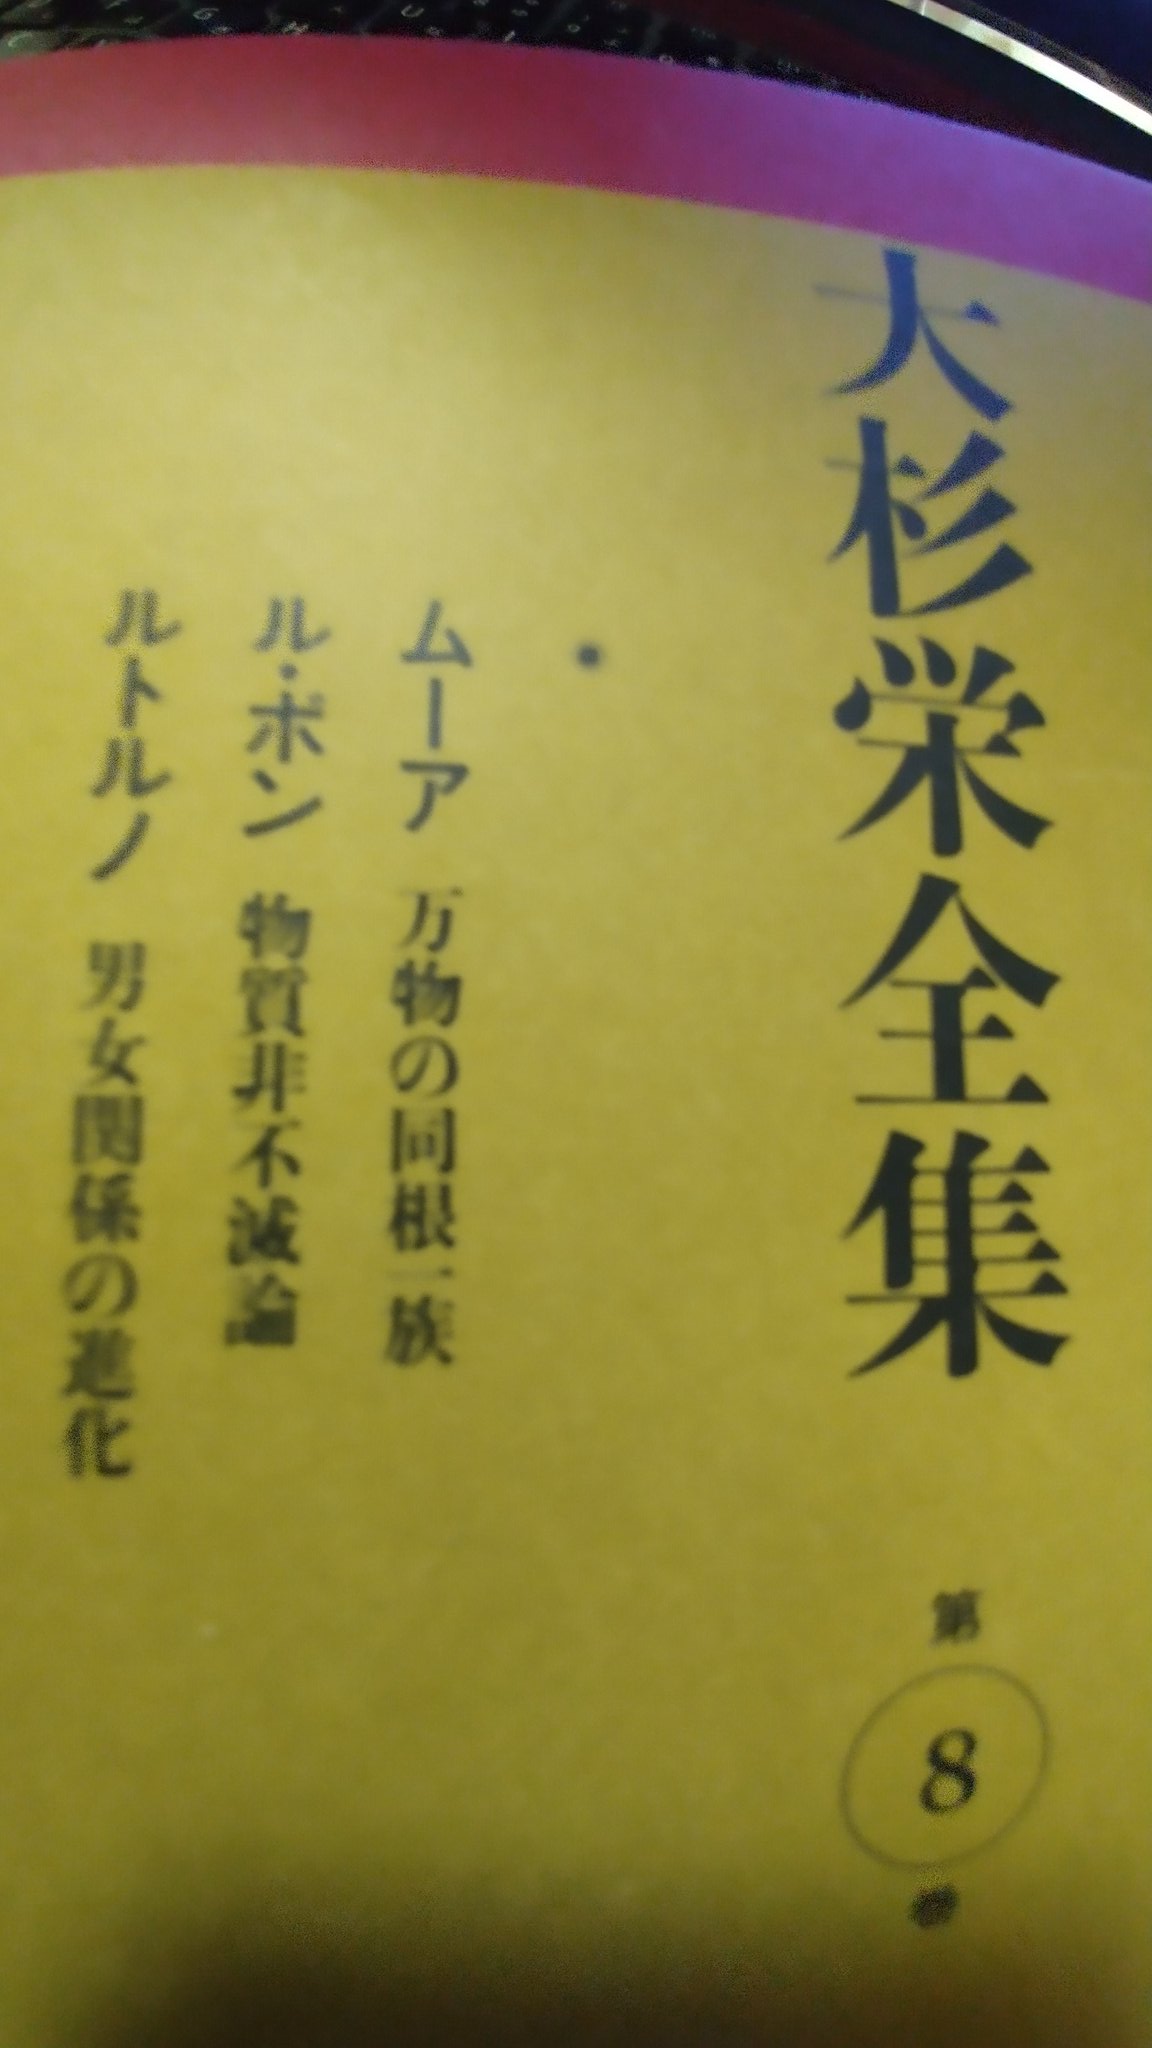 大杉栄全集
第8
・
ムーア 万物の同根一族
ル・ボン 物質非不滅論
ルトルノ 男女関係の進化